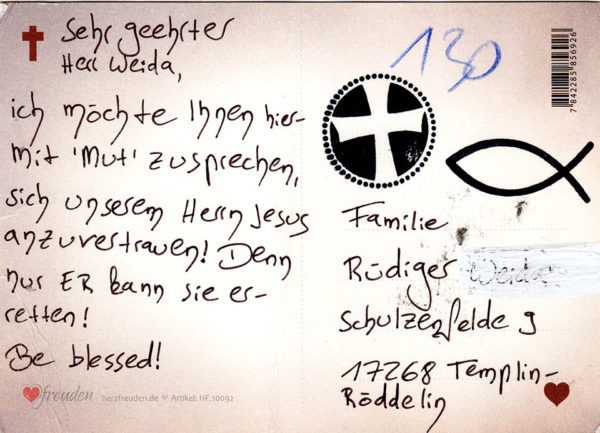 Sehr geehrter
Herr Weida,
ich möchte Ihnen hier-
mit 'Mut' zusprechen,
sich unserem Herrn Jesus
anzuvertrauen! Denn
nur ER kann sie er-
retten!
Be blessed!
freuden herzfreuden.de ♥ Artikel: HF.10092
130
7842285856926
Familie
Rüdiger Weida
Schulzenfelde 9
17268 Templin-
Röddelin